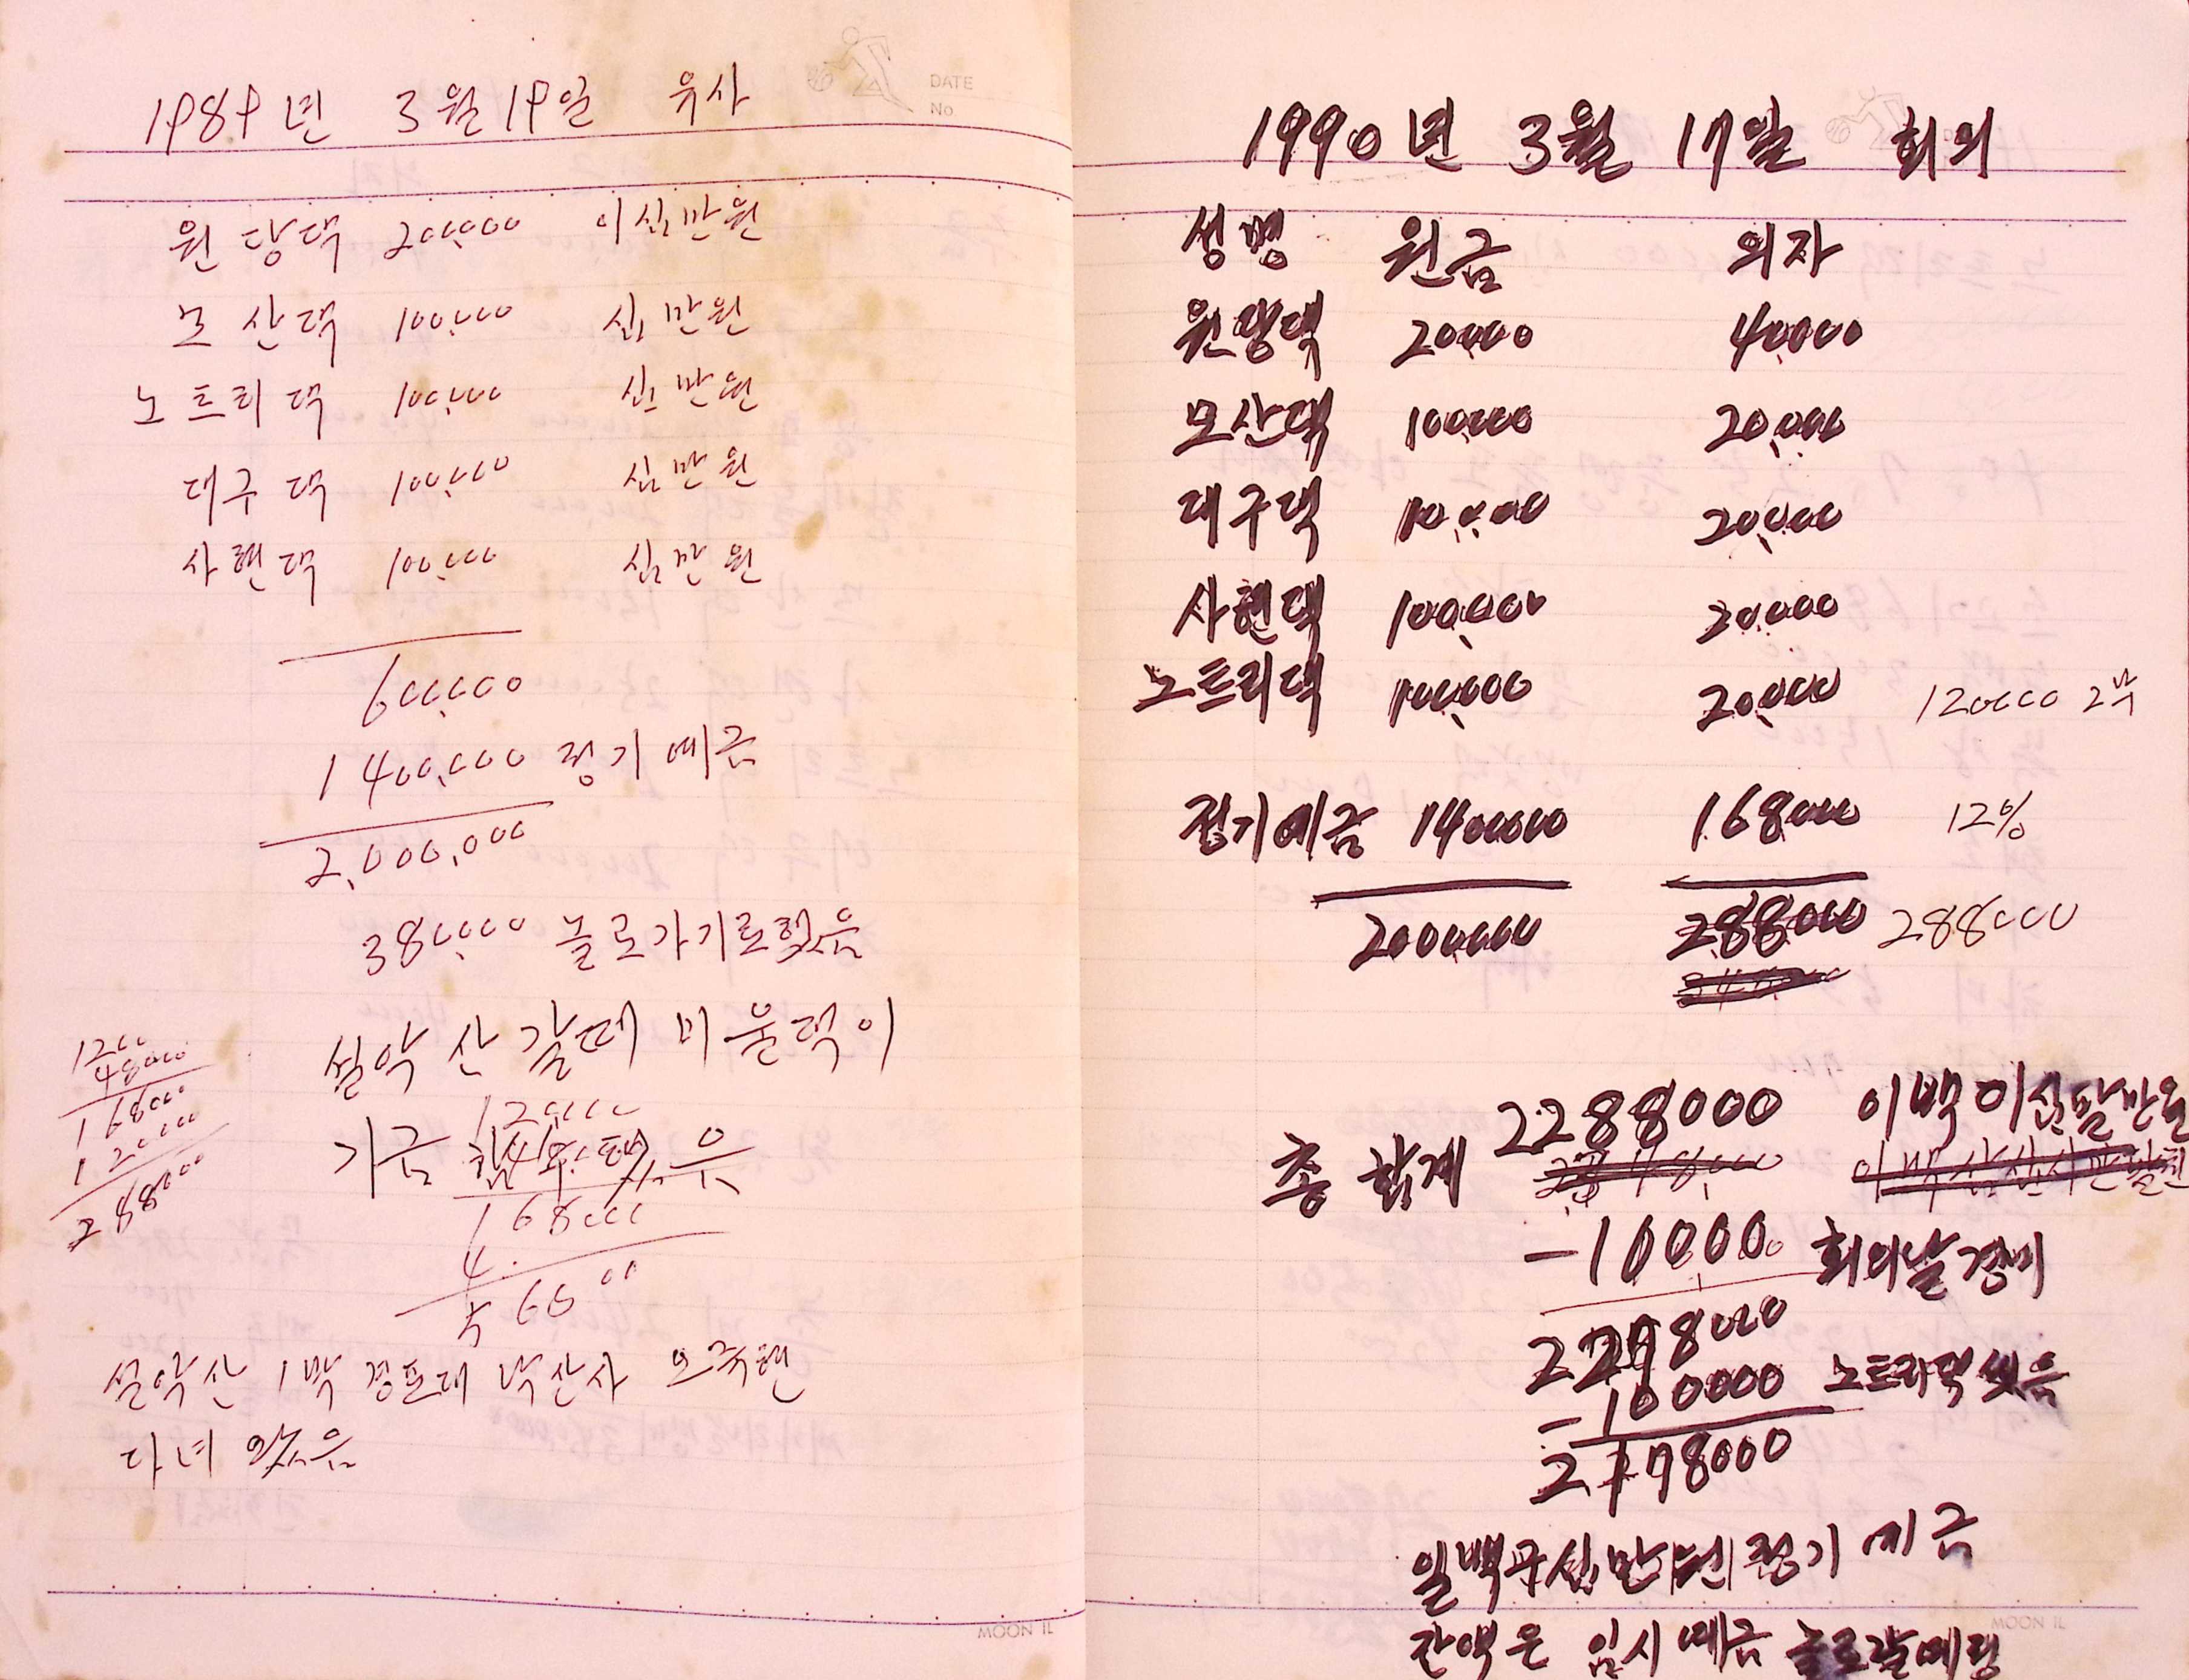 DATE
No
1989년 3월 19일 유사
원당댁 200,000 이십만원
모산댁 100,000 십만원
노트리댁 100,000 십만원
대구댁 100,000 십만원
사현댁 100,000 십만원
600,000
1400,000 정기예금
2,000,000
380,000 놀로가기로했음
설악산 갈때 미울댁이
기금
120,000
168000
4.
설악산 1박 경포대 낙산사 오죽헌
다녀 왔음
1200
48000
168000
120000
288000
MOON IL
1990년 3월 17일 회의
성명 원금 의자
원당댁 200000 40000
모산댁 100000 20,000
대구댁 100,000 20,000
사현댁 100,000 20,000
노트리댁 100,000 20,000 120000 2부
정기예금 1400000 168000 12%
2000000 288000 288000
2288000 이백이십팔만원
총 합계
-10000 회의날경비
2278000
-100000 노트리댁 썼음
2178000
일백구십만원 정기예금
잔액은 임시예금 놀로갈예정
MOON IL